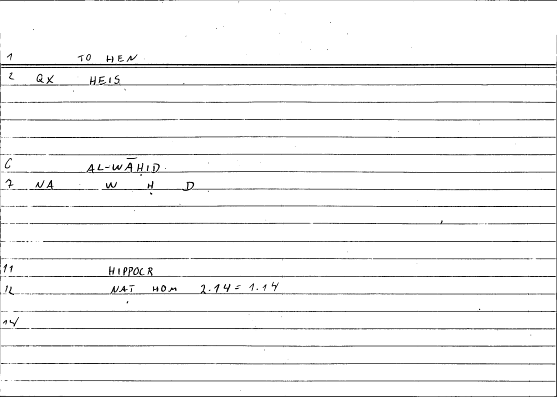 1 TO HEN
2 QX HEIS
6 AL-WĀḤID
7 NA W Ḥ D
11 HIPPOCR
12 NAT HOM 2.14 = 1.14
14